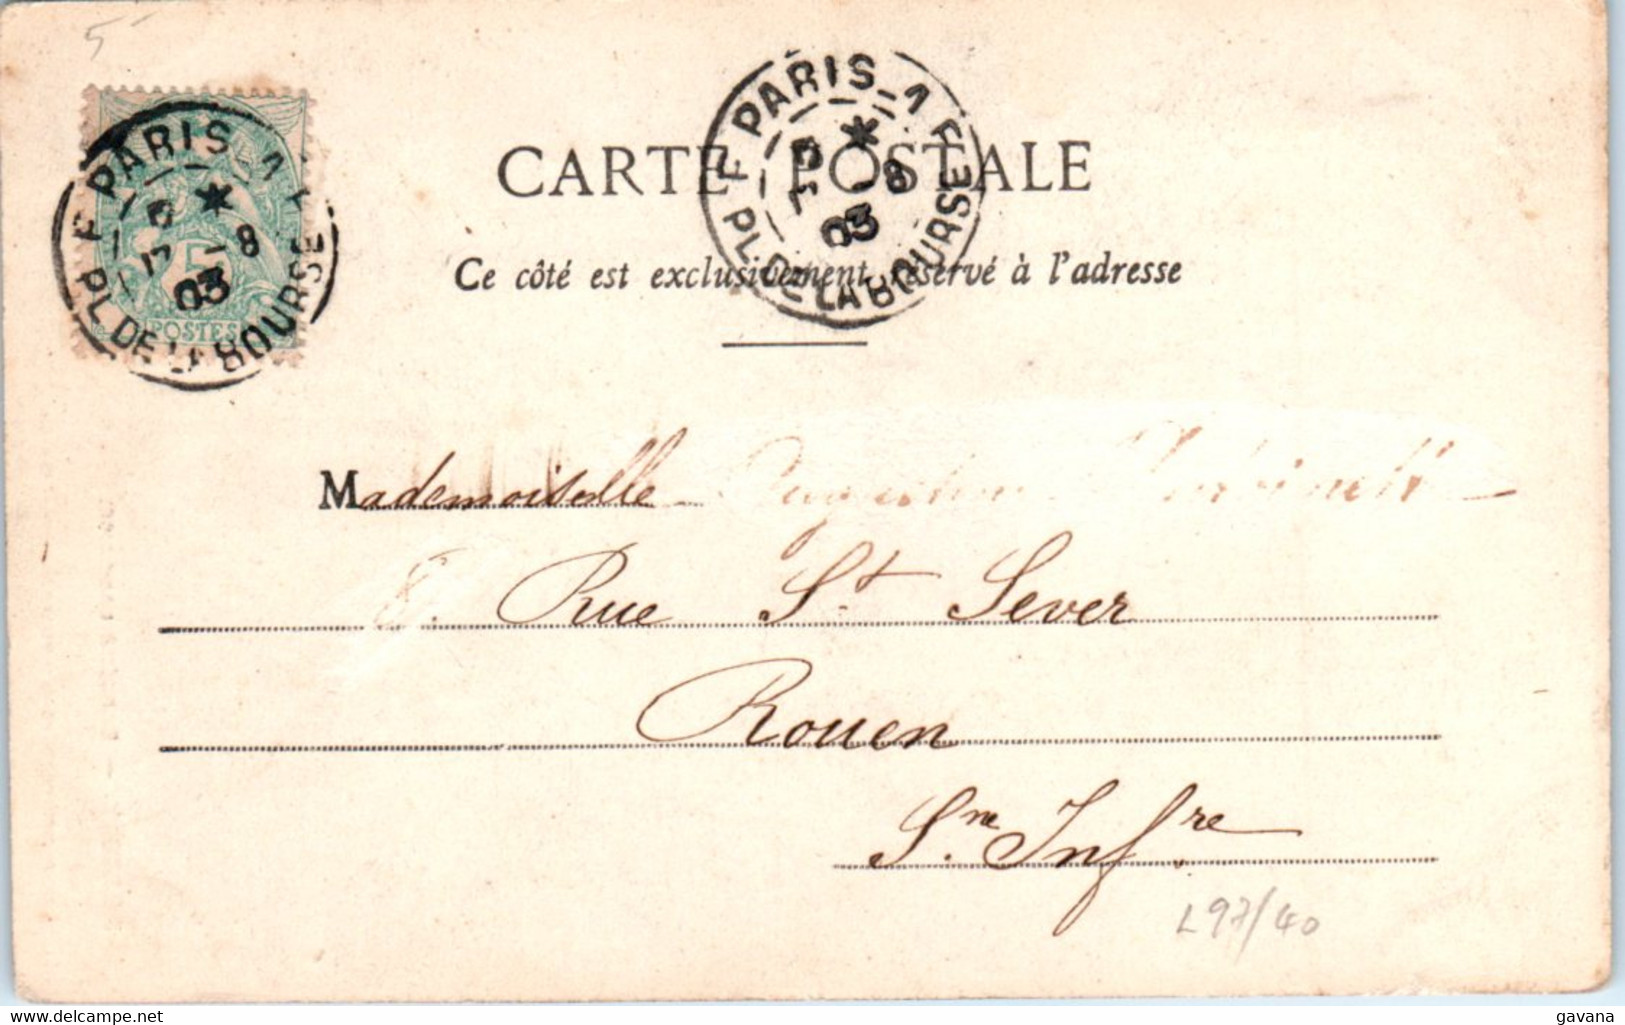 5
PARIS 1
PL. DE LA BOURSE
17 -8
03
5
POSTES
PARIS 1
PL. DE LA BOURSE
17 -8
03
CARTE POSTALE
Ce côté est exclusivement réservé à l'adresse
Mademoiselle
8. Rue St Sever
Rouen
Sne Infre
L97/40
gavana
delcampe.net